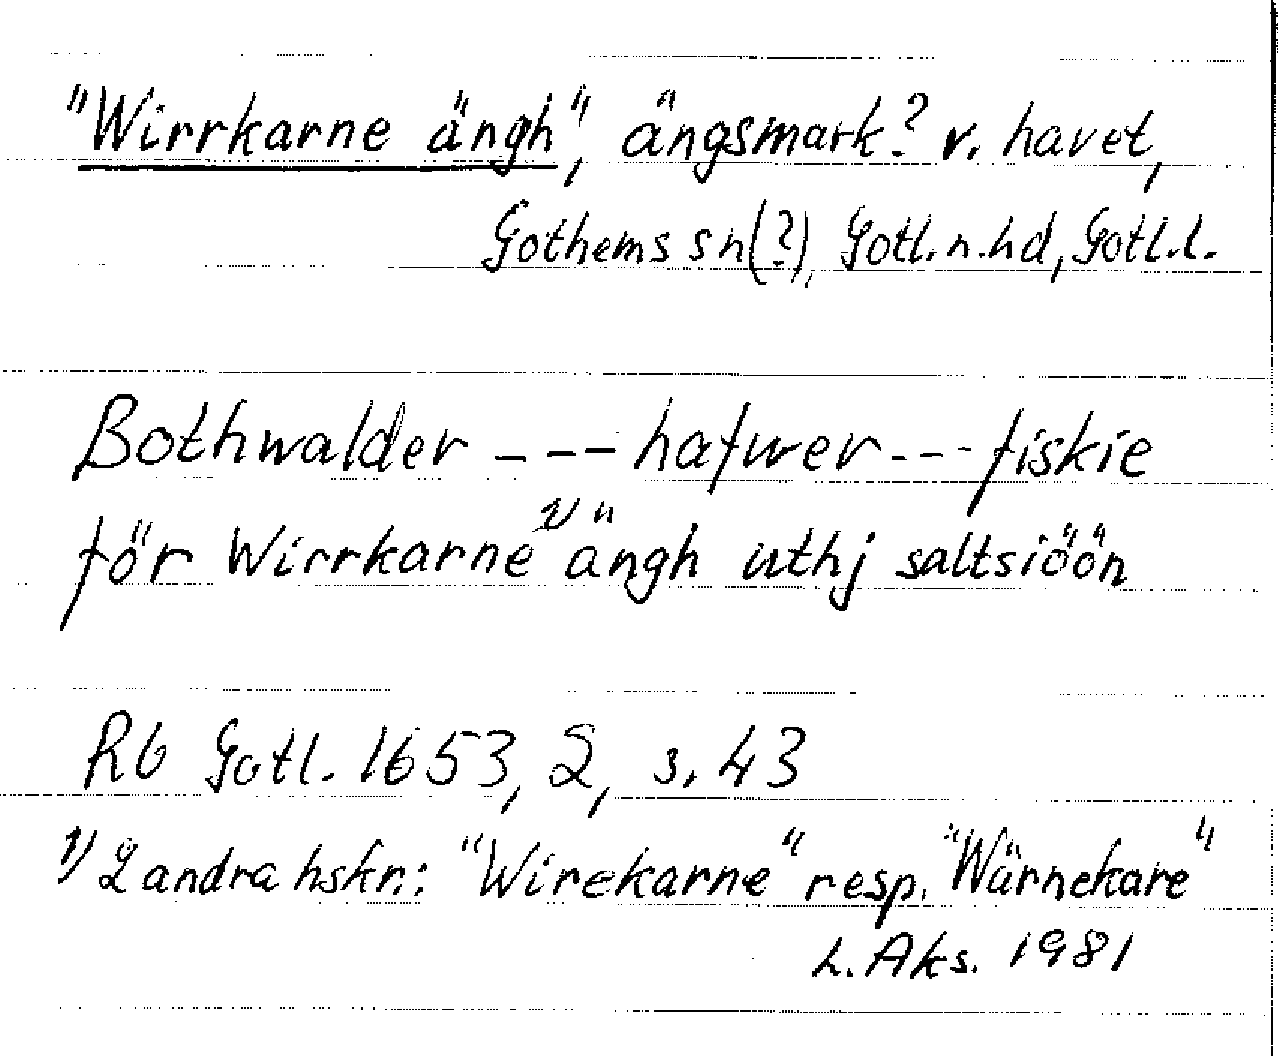 "Wirrkarne ängh", ängsmark? v. havet,
Gothems sn(?), Gotl. n. hd, Gotl. l.
Bothwalder --- hafwer --- fiskie
för Wirrkarne 1) ängh uthj saltsiöön
Rb Gotl. 1653, 2, s. 43
1) 2 andra hskr.: "Wirekarne" resp. "Wärnekare"
L. Aks. 1981